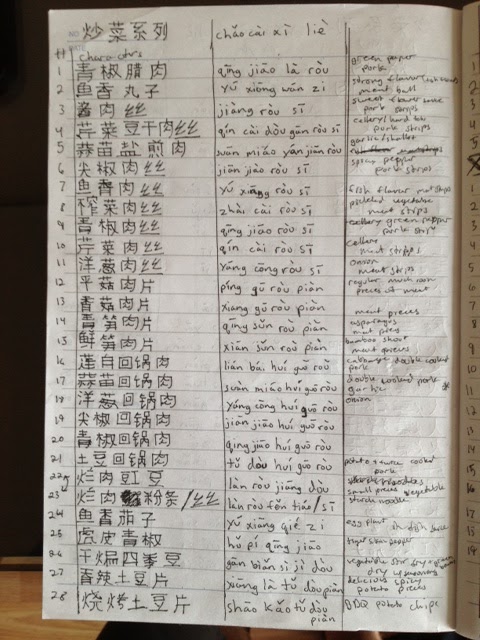 炒菜系列 chǎo cài xì liè
# characters
1 青椒腊肉 qīng jiāo là ròu green pepper pork
2 鱼香丸子 yú xiāng wán zi strong flavor meat ball
3 酱肉丝 jiàng ròu sī sweet flavor pork strips
4 芹菜豆干肉丝 qín cài dòu gān ròu sī celery/hard tofu pork strips
5 蒜苗盐煎肉 suàn miáo yán jiān ròu garlic/shallot
6 尖椒肉丝 jiān jiāo ròu sī spicy pepper pork strips
7 鱼香肉丝 yú xiāng ròu sī fish flavor meat strips
8 榨菜肉丝 zhà cài ròu sī pickled vegetable meat strips
9 青椒肉丝 qīng jiāo ròu sī green pepper pork strip
10 芹菜肉丝 qín cài ròu sī celery meat strips
11 洋葱肉丝 yáng cōng ròu sī onion meat strips
12 平菇肉片 píng gū ròu piàn regular mushroom pieces of meat
13 香菇肉片 xiāng gū ròu piàn meat pieces
14 青笋肉片 qīng sǔn ròu piàn asparagus meat
15 鲜笋肉片 xiān sǔn ròu piàn bamboo shoot meat pieces
16 莲白回锅肉 lián bái huí guō ròu cabbage double cooked pork
17 蒜苗回锅肉 suàn miáo huí guō ròu double cooked pork garlic
18 洋葱回锅肉 yáng cōng huí guō ròu onion
19 尖椒回锅肉 jiān jiāo huí guō ròu
20 青椒回锅肉 qīng jiāo huí guō ròu
21 土豆回锅肉 tǔ dòu huí guō ròu potato twice cooked pork
22 烂肉豇豆 làn ròu jiāng dòu small pieces vegetable
23 烂肉粉条/丝 làn ròu fěn tiáo/sī starch noodle
24 鱼香茄子 yú xiāng qié zi egg plant in fish sauce
25 虎皮青椒 hǔ pí qīng jiāo tiger skin pepper
26 干煸四季豆 gān biān sì jì dòu vegetable stir dry
27 香辣土豆片 xiāng là tǔ dòu piàn delicious spicy potato pieces
28 烧烤土豆片 shāo kǎo tǔ dòu piàn BBQ potato chips